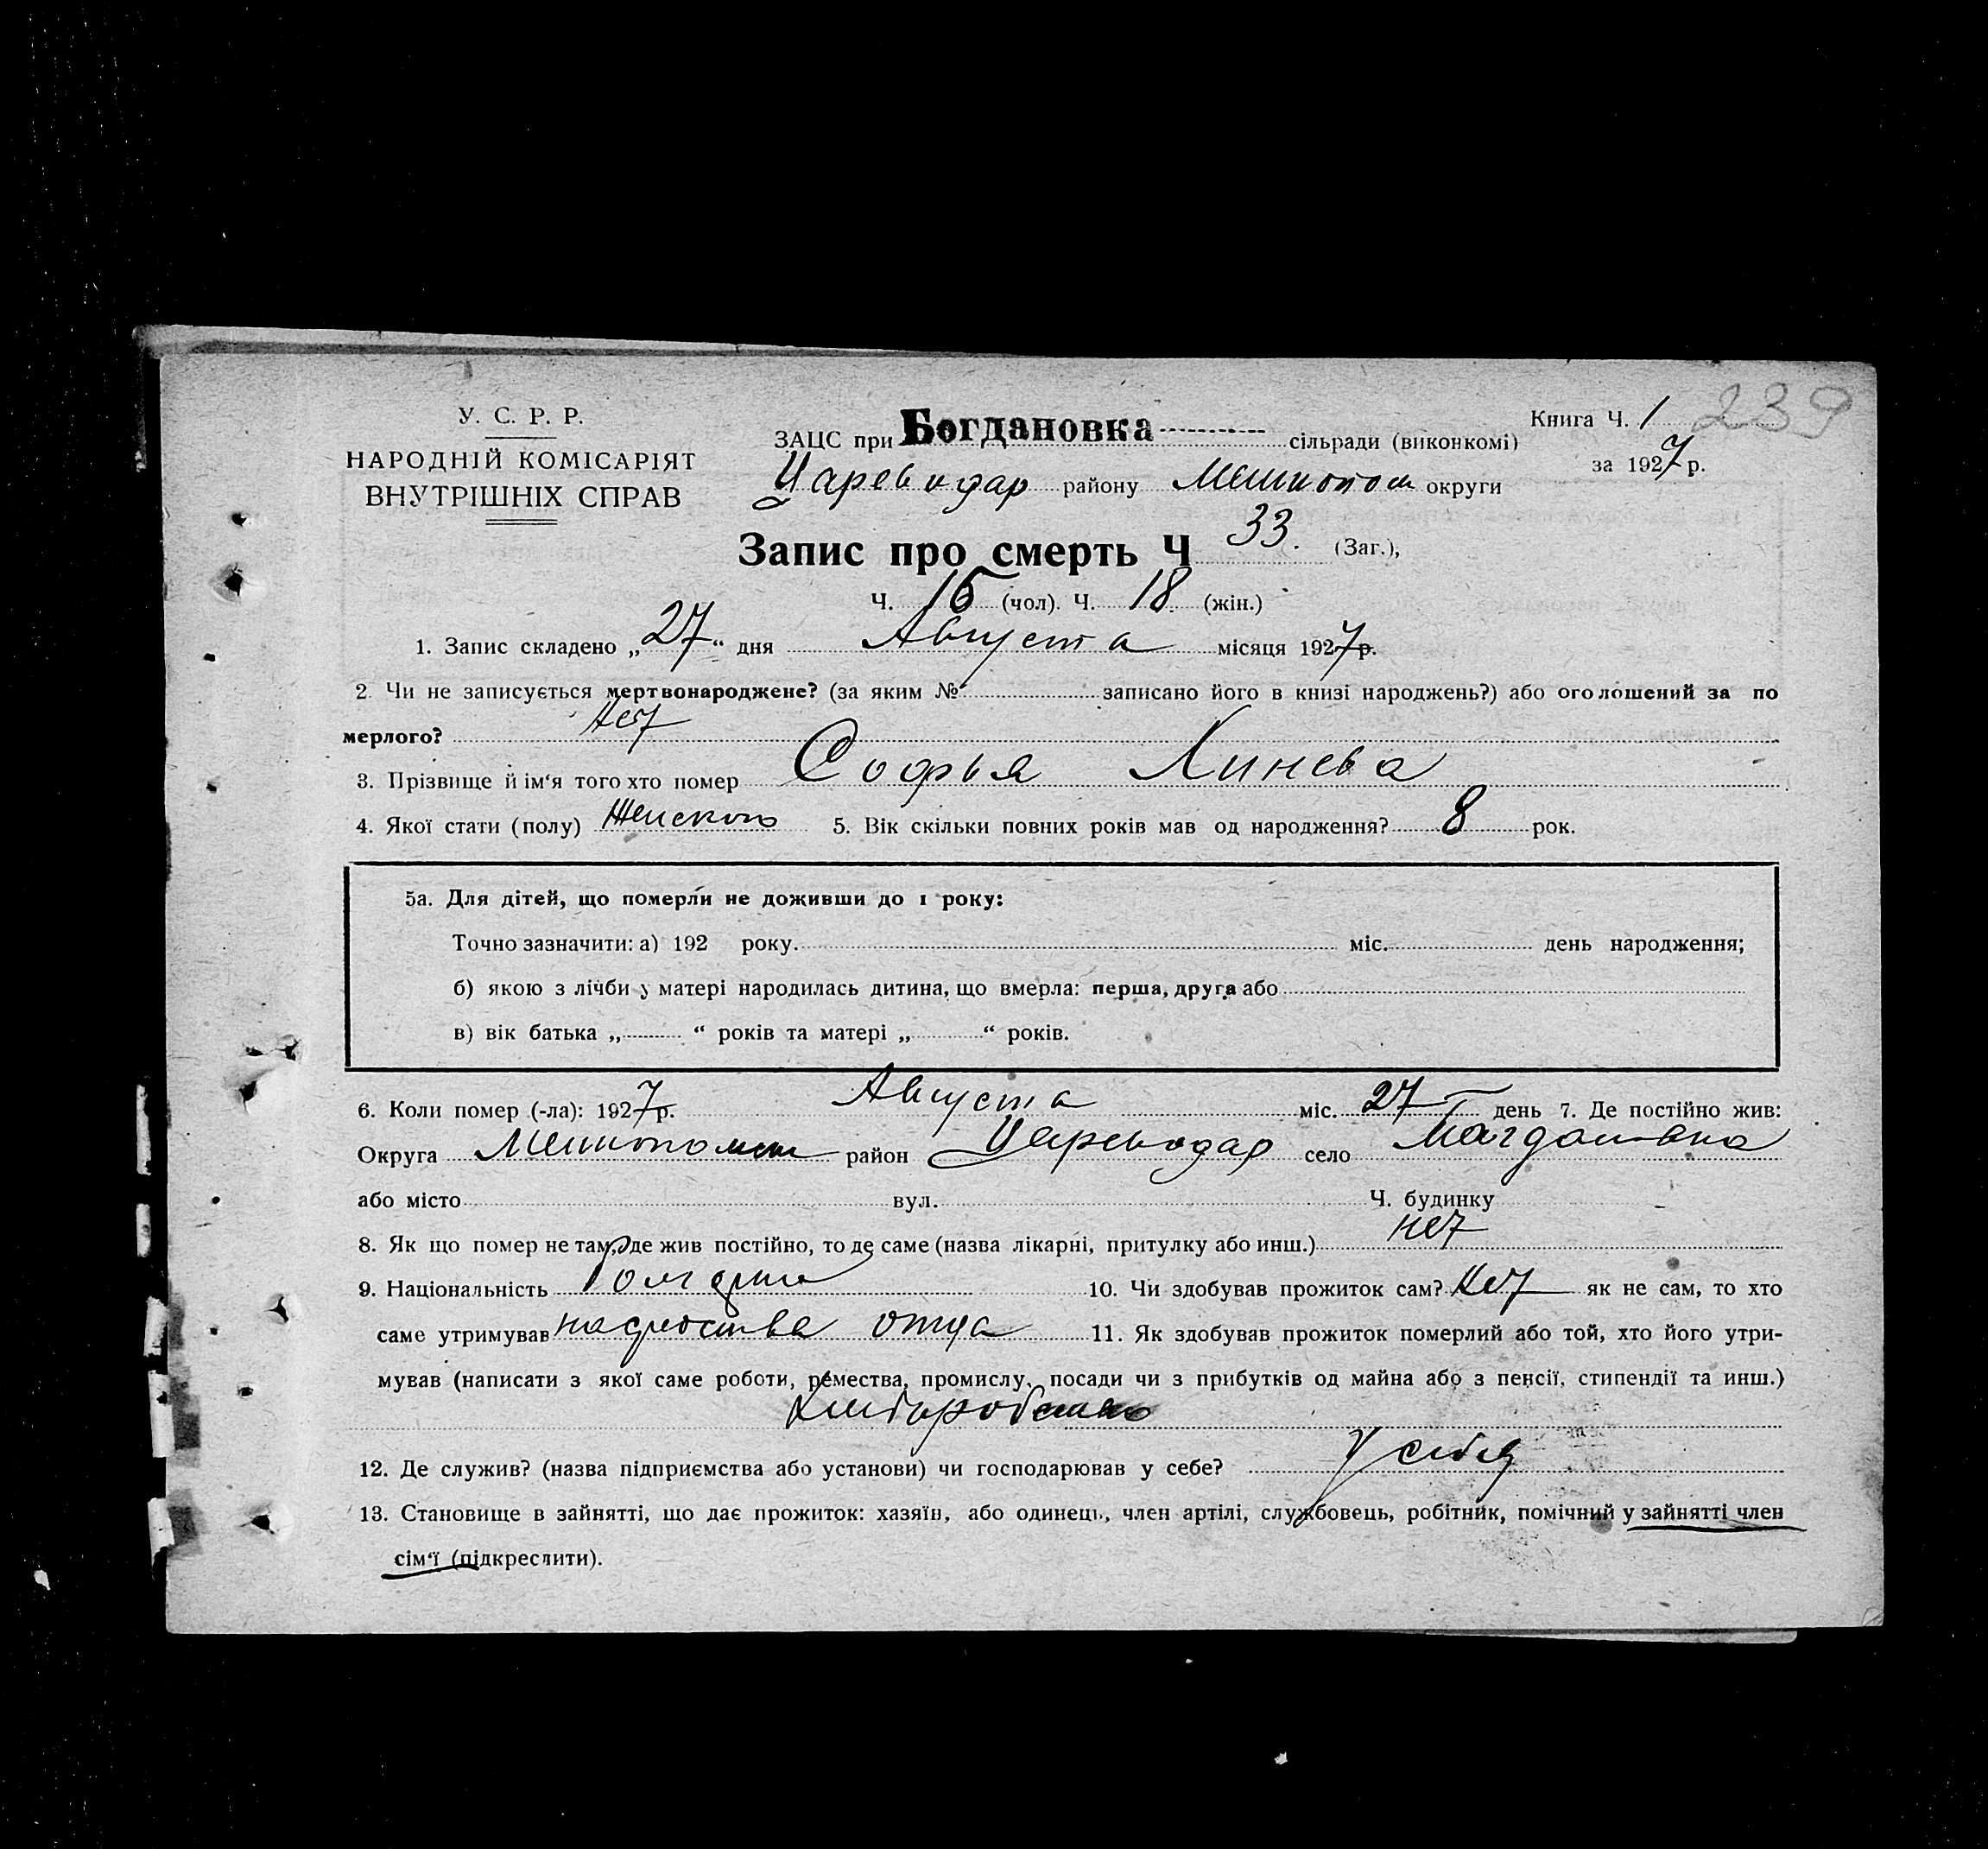 У. С. Р. Р.
НАРОДНІЙ КОМІСАРІЯТ
ВНУТРІШНІХ СПРАВ
Книга Ч. 1 239
за 1927 р.
ЗАЦС при Богдановка сільради (виконкомі)
Цареводар району Мелитопол округи
Запис про смерть Ч 33. (Заг.),
Ч. 15 (чол). Ч. 18 (жін.)
1. Запис складено „27“ дня Августа місяця 1927 р.
2. Чи не записується мертвонароджене? (за яким № записано його в книзі народжень?) або оголошений за по
мерлого? Нет
3. Прізвище й ім'я того хто помер Софья Линева
4. Якої стати (полу) Женского 5. Вік скільки повних років мав од народження? 8 рок.
5а. Для дітей, що померли не доживши до 1 року:
Точно зазначити: а) 192 року. міс. день народження;
б) якою з лічби у матері народилась дитина, що вмерла: перша, друга або
в) вік батька „ “ років та матері „ “ років.
6. Коли помер (-ла): 1927 р. Августа міс. 27 день 7. Де постійно жив:
Округа район Цареводар село
або місто вул. Ч. будинку
8. Як що помер не там, де жив постійно, то де саме (назва лікарні, притулку або инш.) нет
9. Національність 10. Чи здобував прожиток сам? Нет як не сам, то хто
саме утримував на средства отца 11. Як здобував прожиток померлий або той, хто його утри-
мував (написати з якої саме роботи, ремества, промислу, посади чи з прибутків од майна або з пенсії, стипендії та инш.)
12. Де служив? (назва підприємства або установи) чи господарював у себе? У себя
13. Становище в зайнятті, що дає прожиток: хазяїн, або одинець, член артілі, службовець, робітник, помічний у зайнятті член
сім'ї (підкреслити).